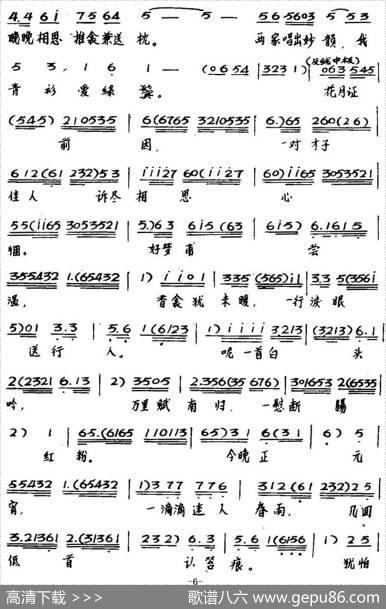 4.4 6i 7564 5 — 5 — 565603 553
晚晚相思 推衾兼送 枕。 两家唱出妙韵，我
5 3, i 6 1 — (0654 | 3231) | 063 545
(反线中板)
青 衫 爱绿 鬓。 花月证
(545) 210535 6(6765 3210535 6.)65 260(26)
前 因， 一对才子
612(61 232)53 iii27 60(ii27 60)ii65 30535321
佳人 诉尽 相 思 心
55(ii65 30535321 5.)63 6i5(63 6i5) 6.1615
悃。 好梦甫 尝
355432 1.(65432 1) i i 0 1 335 (565)i1 3.3 5(356i
温， 香衾犹 未暖，一行凄眼
5)01 3.3 5.6 1(6123 1) i i i i 3213 (3213) 6.1
送行 人。 呢一首白 头
2(2321 6.13 2)3505 2.356(35 676) 301653 2(6535
吟， 万里赋 南归， 一慰断 腸
2) 1 65.(6165 110113 65)31 6(31 6) 5
红 粉。 今晚正 元
55432 1.(65432 1)377 776 312(61 232)25
宵， 一滴滴迷人 春雨， 几回
3.21361 2.(31361 232) 6.3 5.6 1(6156 1) 25
低 首 认 笞 痕。 犹怕
-6-
高清下载 >>> 歌谱八六 www.gepu86.com